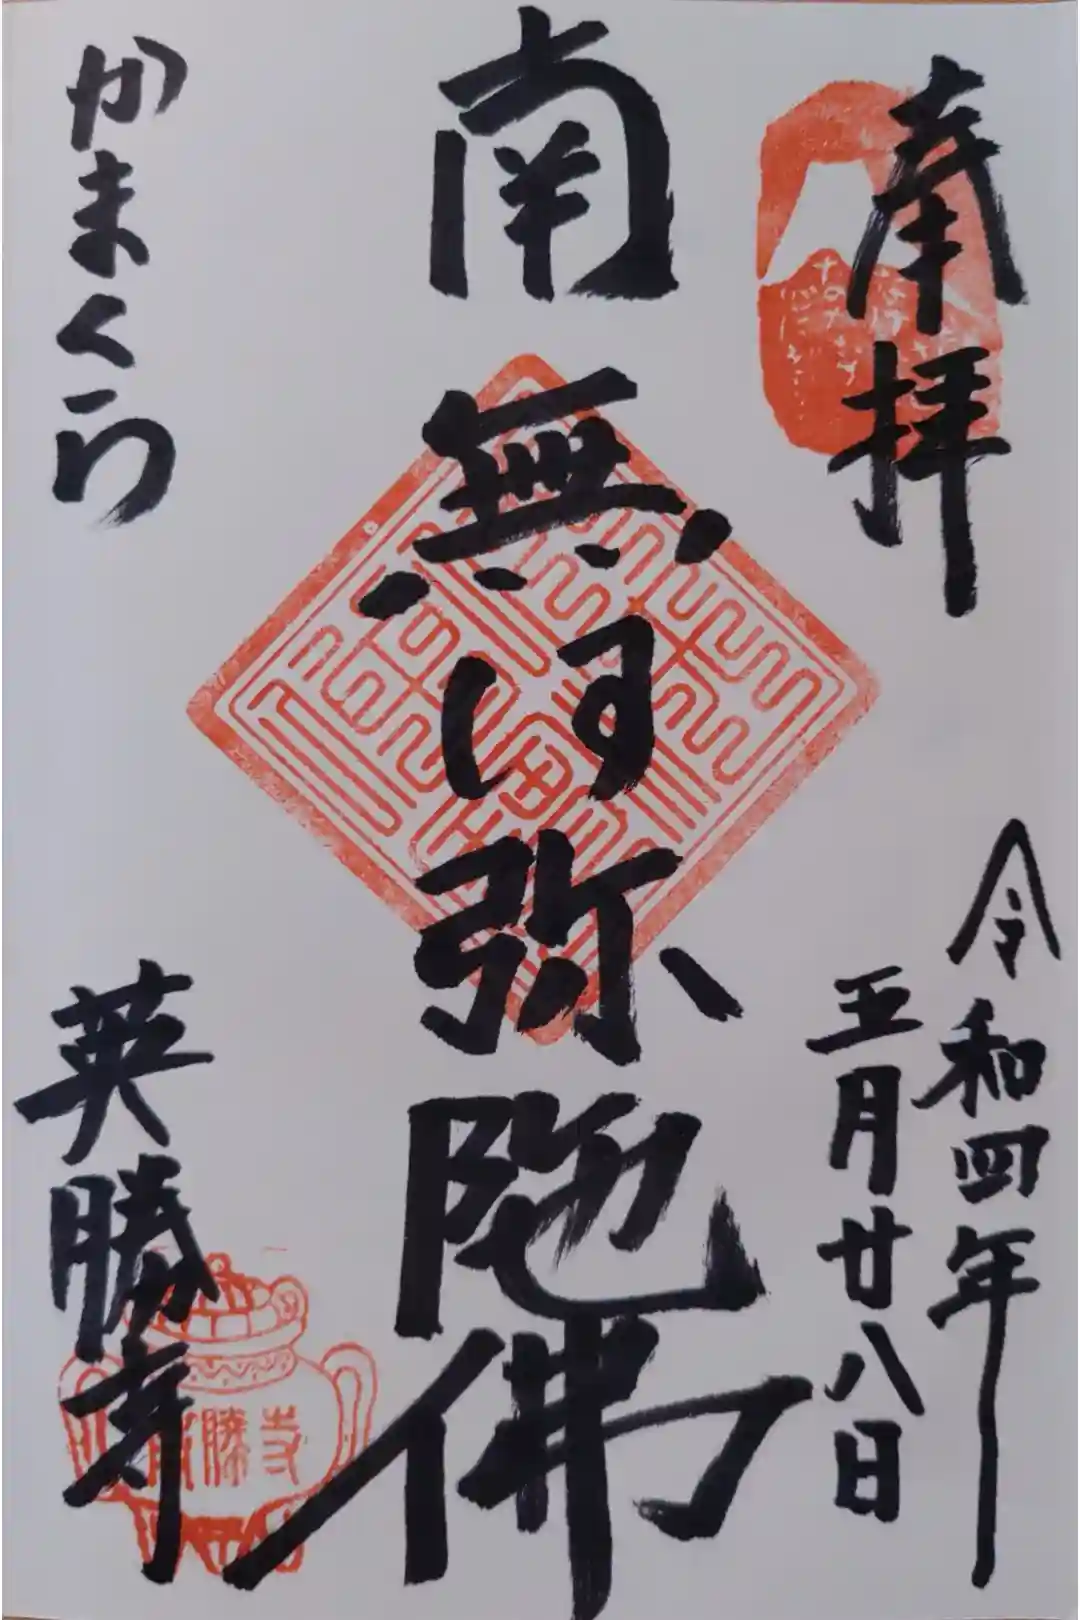 奉拝
令和四年
五月廿八日
南無阿弥陀佛
かまくら
英勝寺
勝寺